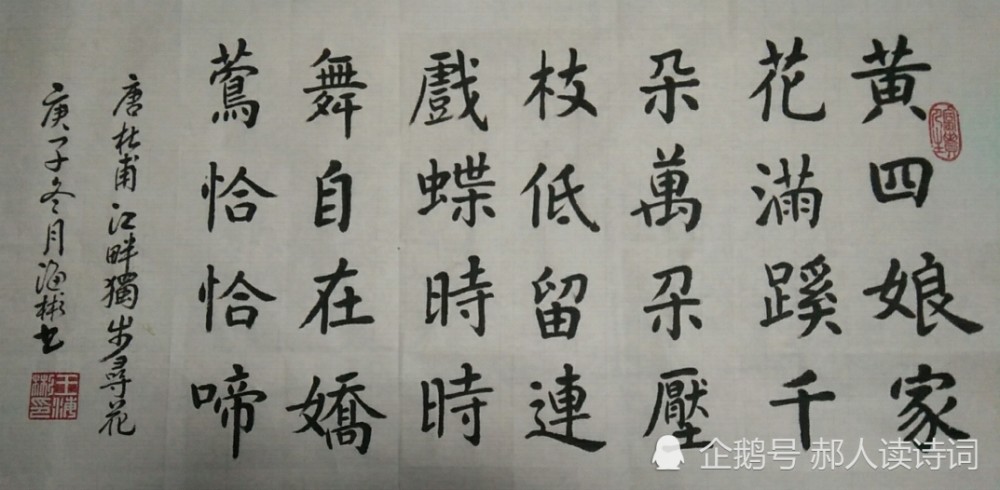 黃四娘家
花滿蹊千
朵萬朵壓
枝低留連
戲蝶時時
舞自在嬌
鶯恰恰啼
唐杜甫江畔獨步尋花
庚子冬月海彬书
王海彬印
企鹅号 郝人读诗词